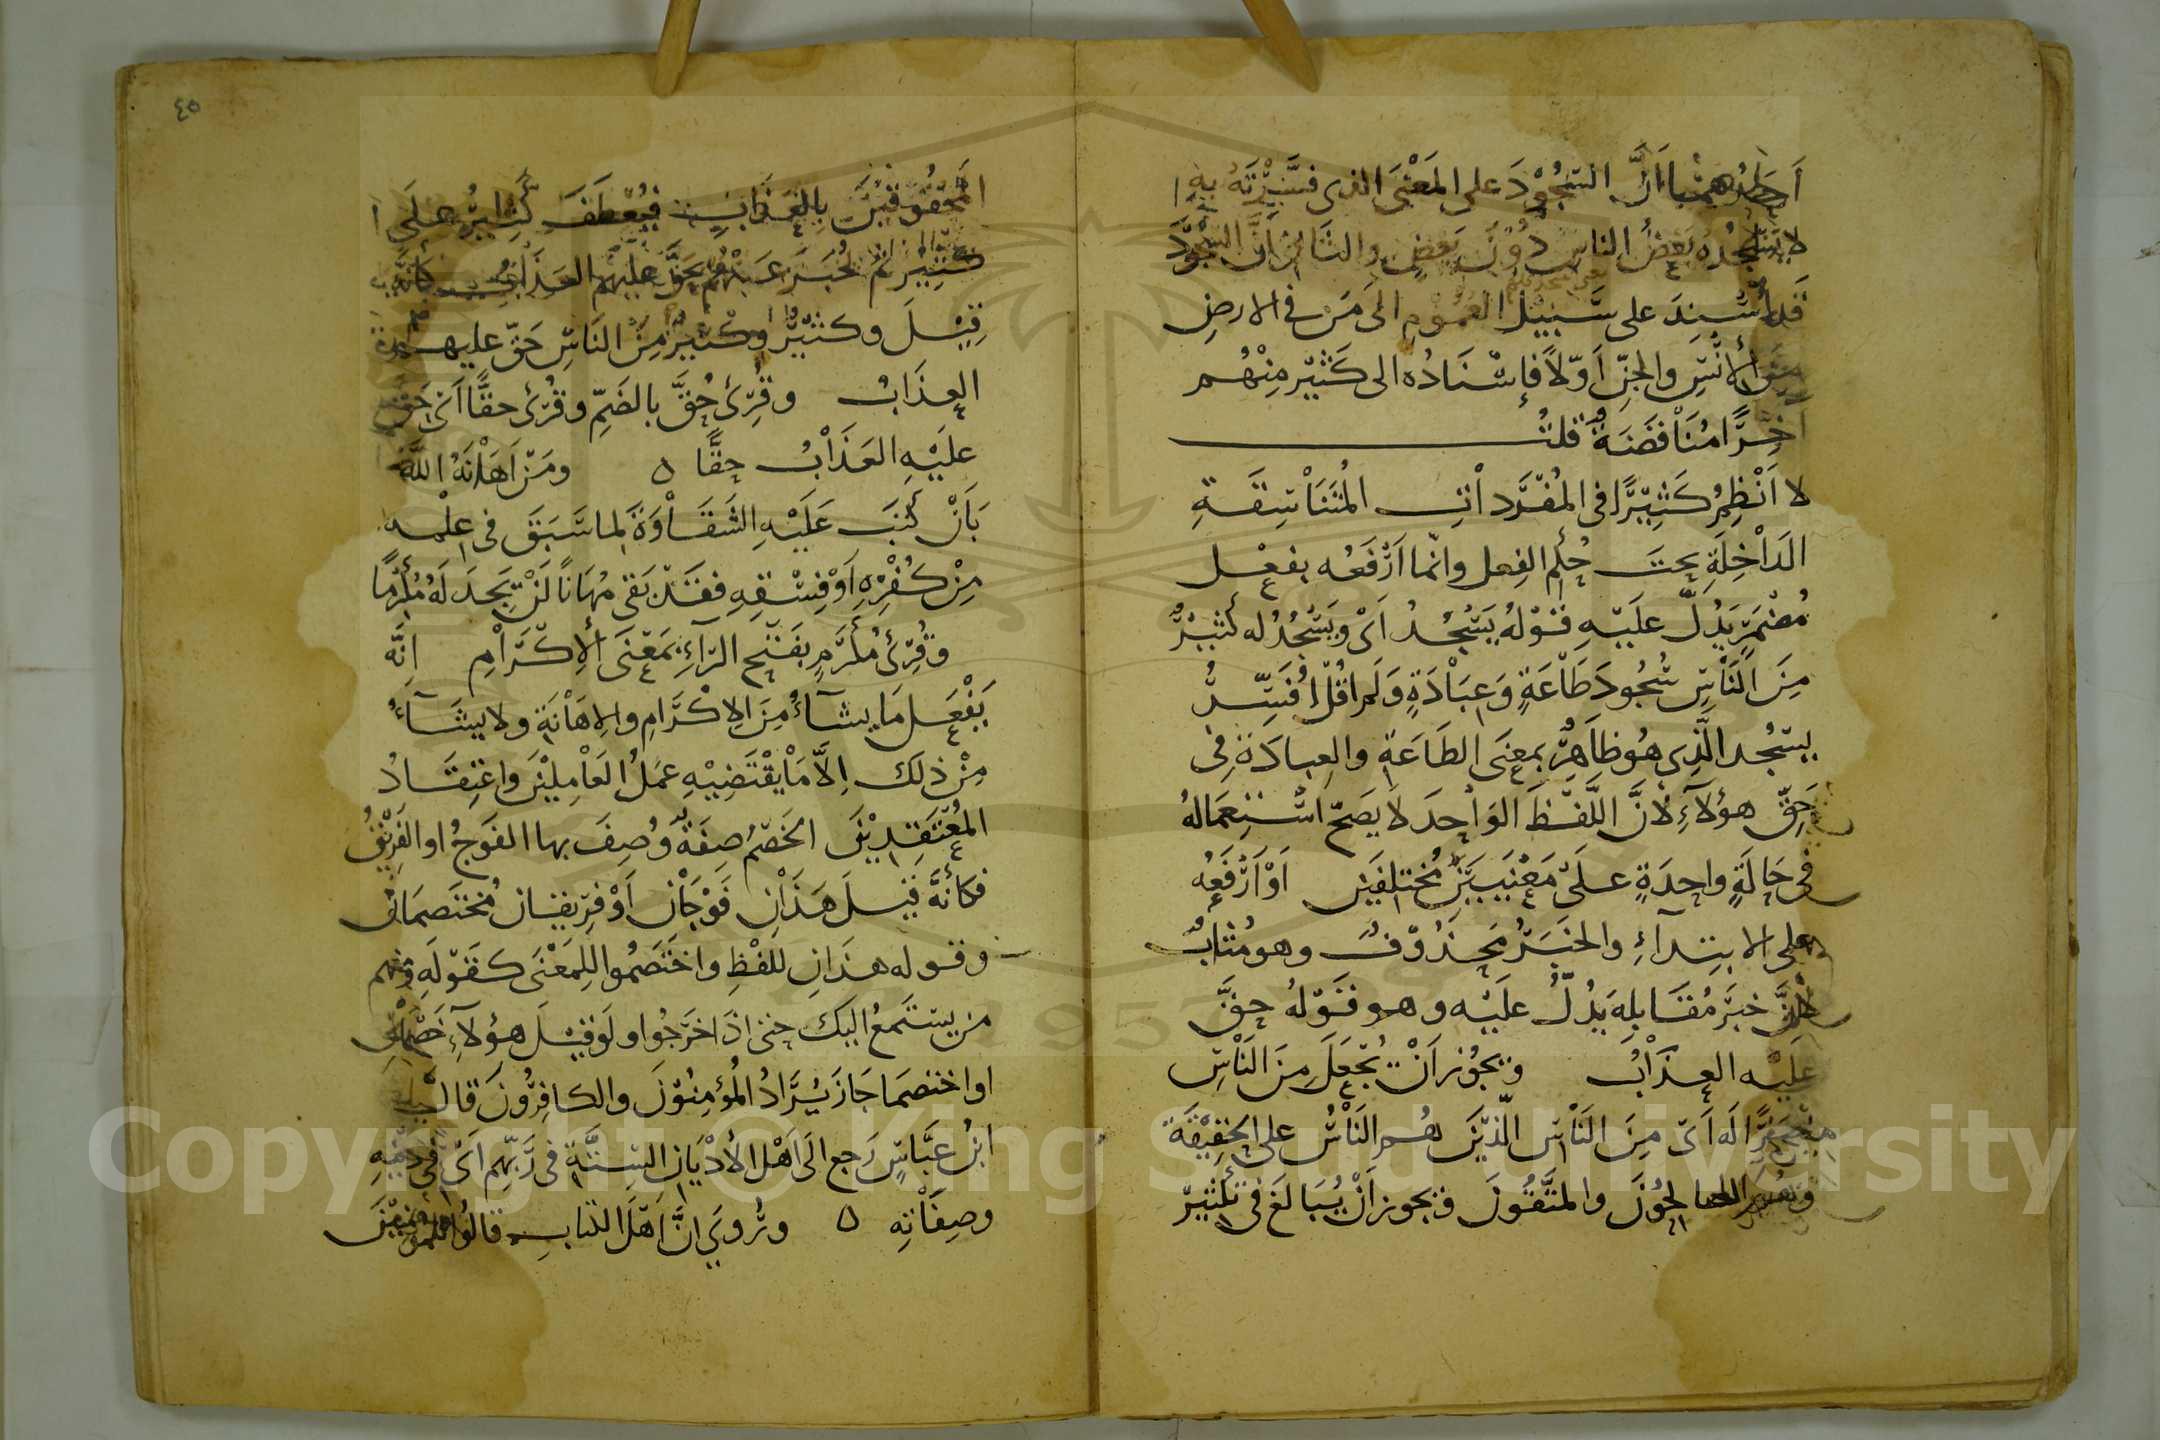 احدهما ان السجود على المعنى الذى فسّرته به
لا يسجده بعض الناس دون بعض والثاني ان السجود
قد أسند على سبيل العموم الى من في الارض
من الانس والجن اوّلا فإسناده الى كثير منهم
اخرًا مناقضة قلت
لا انظم كثيرًا في المفردات المتناسقة
الداخلة تحت حكم الفعل وانما ارفعه بفعل
مضمر يدل عليه قوله يسجد اى ويسجد له كثير
من الناس سجود طاعة وعبادة ولم اقل افسّر
يسجد الذي هو ظاهر بمعنى الطاعة والعبادة في
حق هؤلاء لأن اللفظ الواحد لا يصح استعماله
في حالة واحدة على معنيين مختلفين او ارفعه
على الابتداء والخبر محذوف وهو مثاب
لأن خبر مقابله يدل عليه وهو قوله حق
عليه العذاب ويجوز أن يجعل من الناس
خبرًا له اى من الناس الذين هم الناس على الحقيقة
وهم الصالحون والمتقون ويجوز أن يبالغ في تكثير
المحقوقين بالعذاب فيعطف كثير على
كثير ثم يخبر عنهم بحق عليهم العذاب كأنه
قيل وكثير وكثير من الناس حق عليهم
العذاب وقرئ حُقّ بالضم وقرئ حقًّا اى حق
عليه العذاب حقًّا ه ومن اهانه الله
بأن كتب عليه الشقاوة لما سبق في علمه
من كفره او فسقه فقد بقى مهانا لن تجد له مكرمًا
وقرئ مكرَم بفتح الراء بمعنى الاكرام انه
يفعل ما يشاء من الاكرام والاهانة ولا يشاء
من ذلك إلاّ ما يقتضيه عمل العاملين واعتقاد
المعتقدين الخصم صفة وصف بها الفوج او الفريق
فكأنه قيل هذان فوجان او فريقان مختصمان
وقوله هذان للفظ واختصموا للمعنى كقوله ومنهم
من يستمع اليك حتى اذا خرجوا ولو قيل هؤلاء خصمان
او اختصما جاز يراد المؤمنون والكافرون قال
ابن عباس رجع الى اهل الأديان الستة في ربهم اى في دينه
وصفاته ه وروي انّ اهل الكتاب قالوا للمؤمنين
٤٥
Copyright © King Saud University
1957